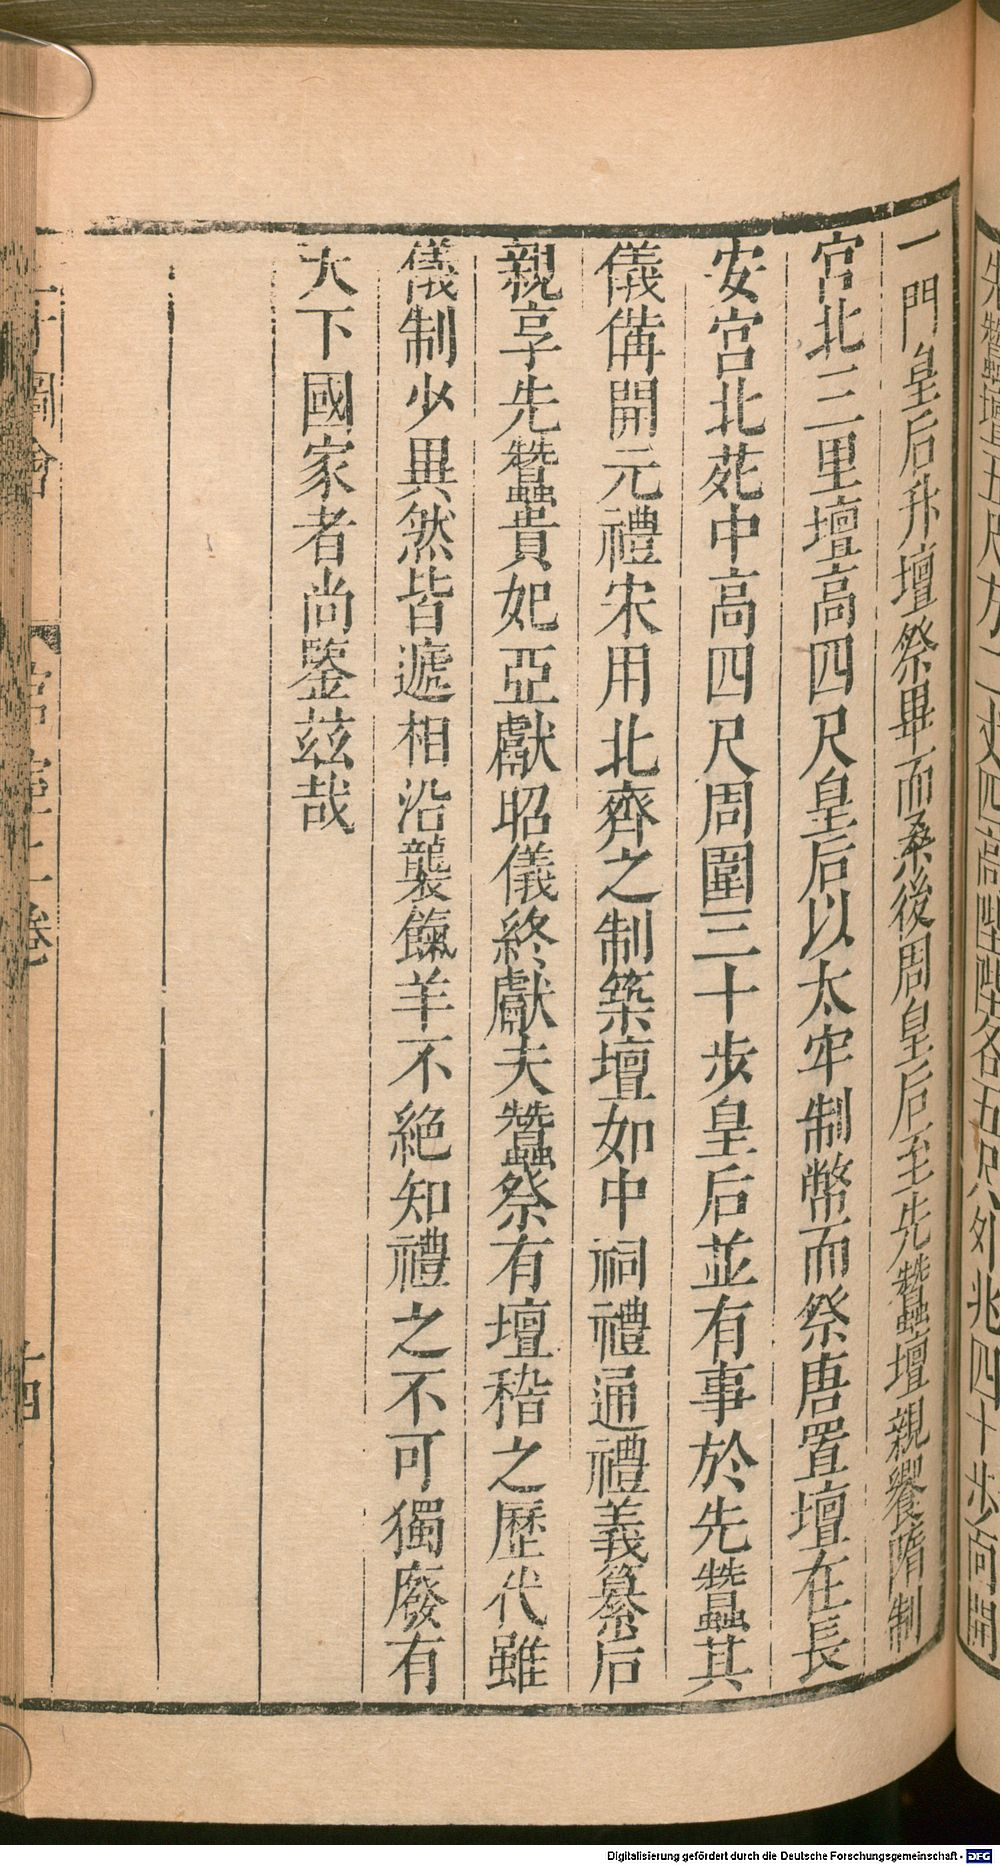 先蠶壇五尺方二丈四高陛陛各五尺外兆四十步面開
一門皇后升壇祭畢而桑後周皇后至先蠶壇親饗隋制
宮北三里壇高四尺皇后以太牢制幣而祭唐置壇在長
安宮北苑中高四尺周圍三十步皇后並有事於先蠶其
儀備開元禮宋用北齊之制築壇如中祠禮通禮義纂后
親享先蠶貴妃亞獻昭儀終獻夫蠶祭有壇稽之歷代雖
儀制少異然皆遞相沿襲餼羊不絕知禮之不可獨廢有
天下國家者尚鑒茲哉
圖會
宮室三卷
十四
Digitalisierung gefördert durch die Deutsche Forschungsgemeinschaft - DFG